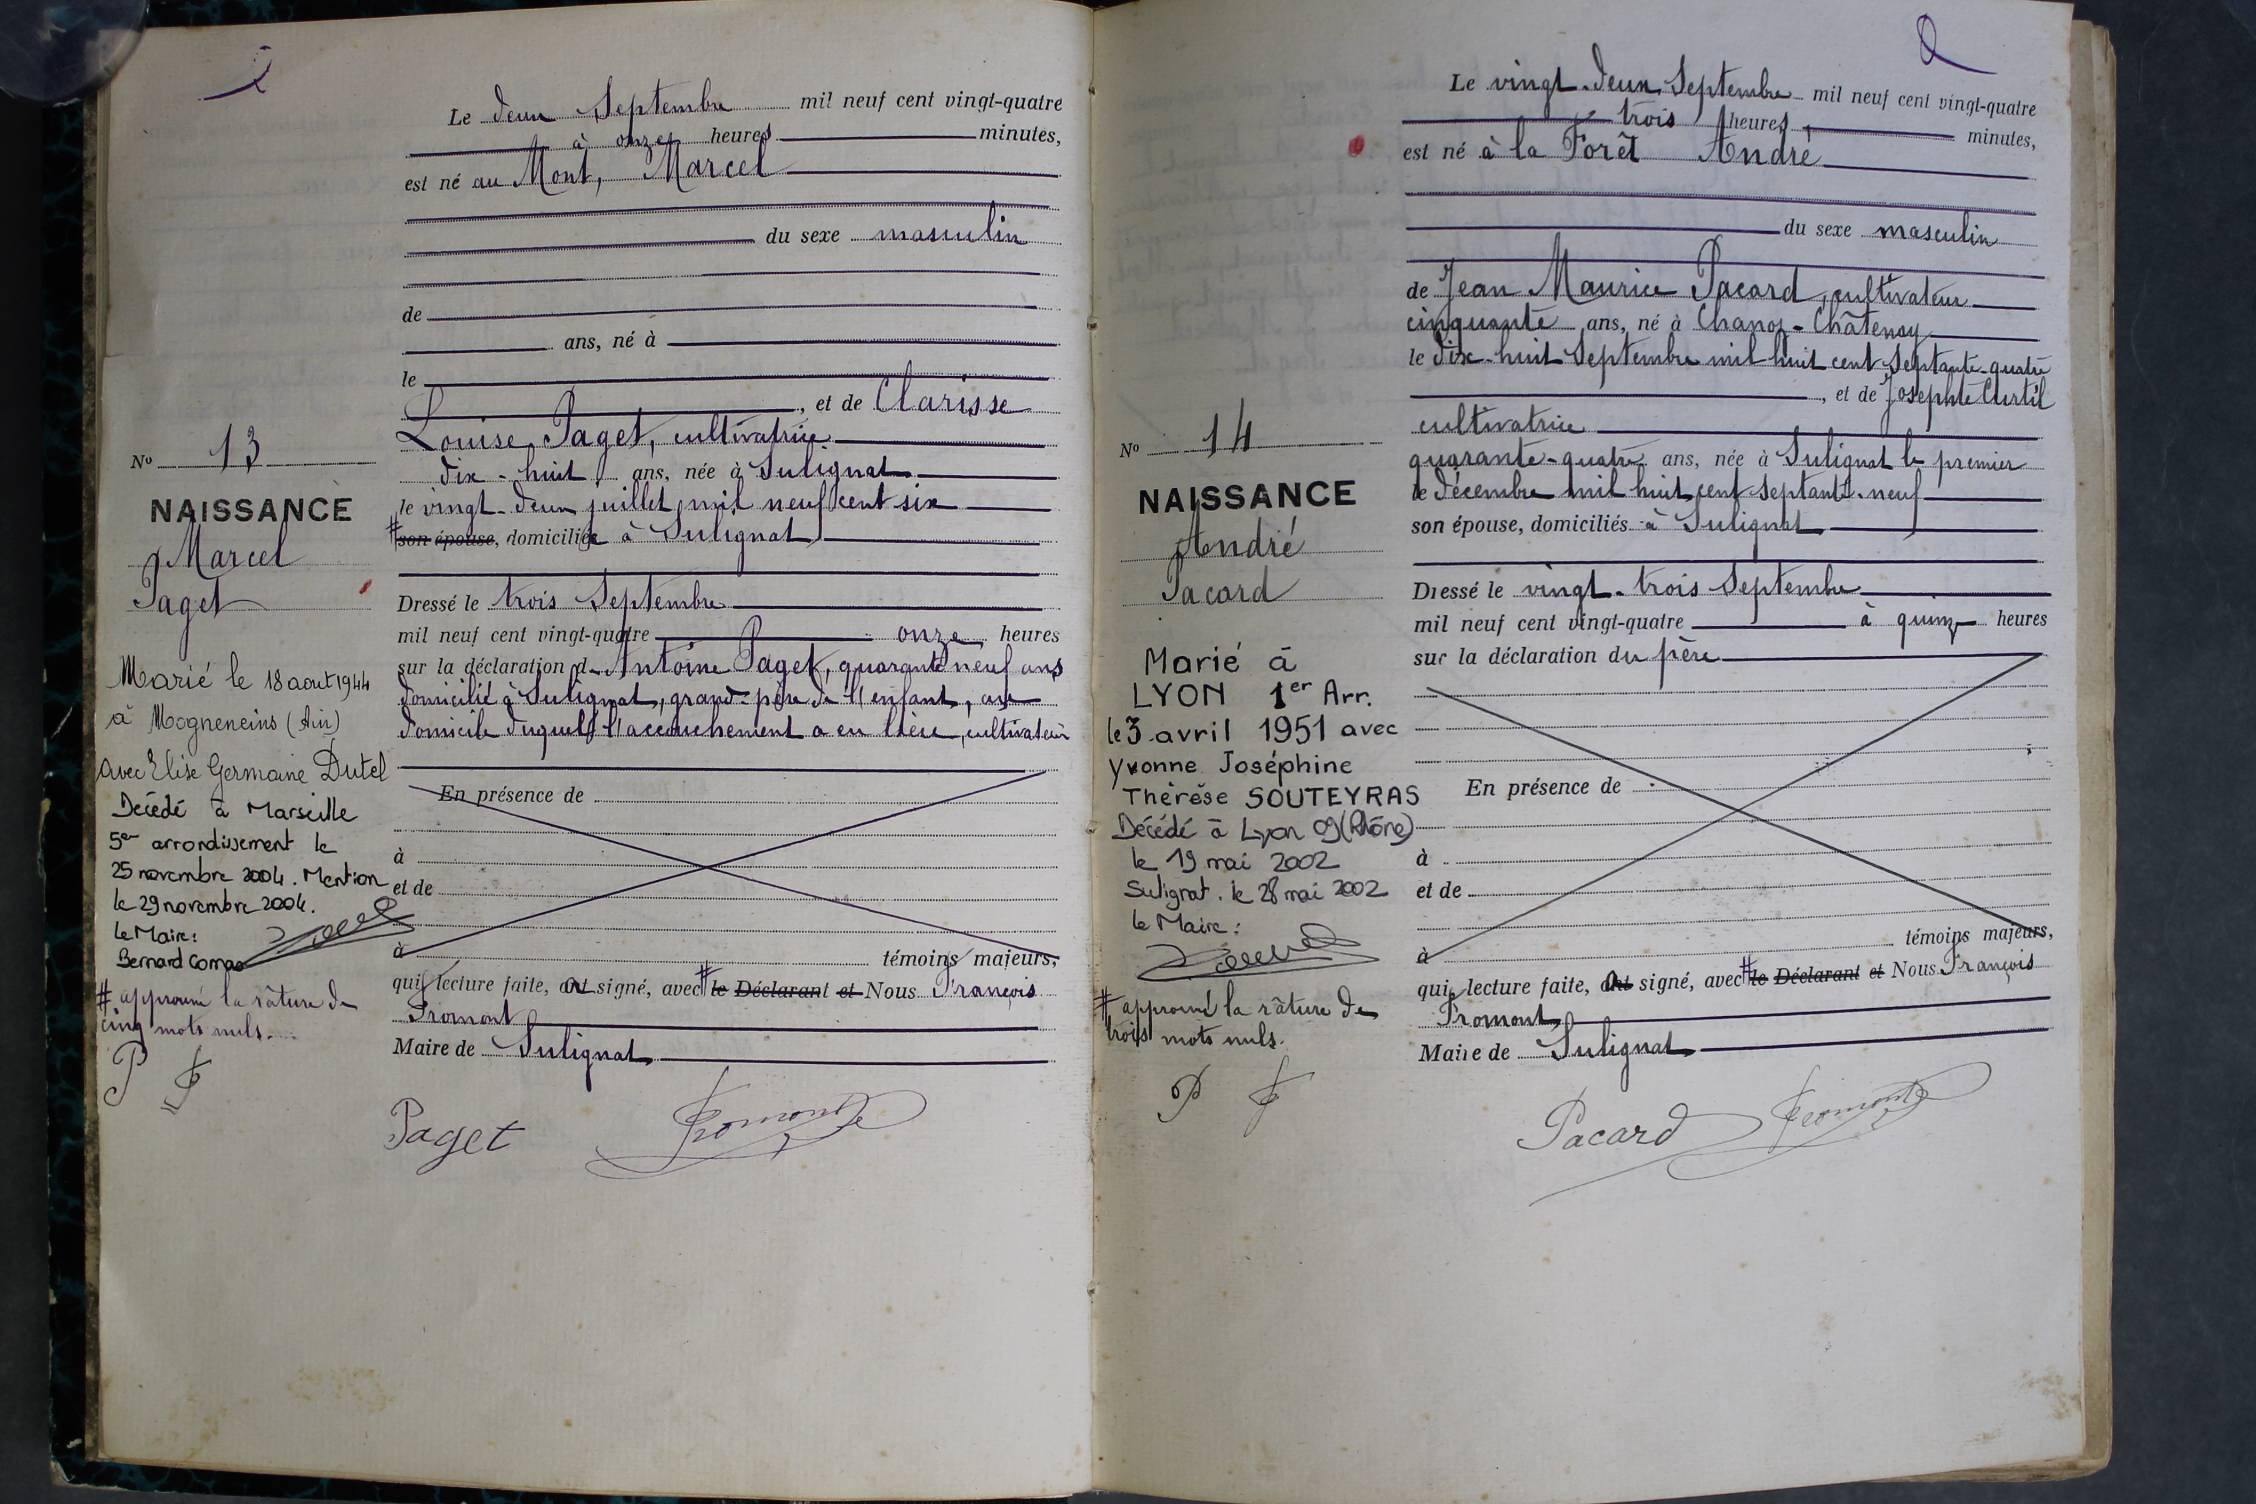 Le deux Septembre mil neuf cent vingt-quatre
à onze heures minutes,
est né au Mont, Marcel
du sexe masculin
de
ans, né à
le
, et de Clarisse
Louise Paget, cultivatrice
dix-huit ans, née à Sulignat
le vingt-deux juillet mil neuf cent six
# son épouse, domiciliée à Sulignat
Dressé le trois Septembre
mil neuf cent vingt-quatre onze heures
sur la déclaration d'Antoine Paget, quarante neuf ans
domicilié à Sulignat, grand-père de l'enfant, au
domicile duquel l'accouchement a eu lieu, cultivateur
En présence de
à
et de
à témoins majeurs,
qui, lecture faite, ont signé, avec # le Déclarant et Nous François
Fromont
Maire de Sulignat
Paget Fromont
No 13
NAISSANCE
Marcel
Paget
Marié le 18 aout 1944
à Mogneneins (Ain)
avec Elise Germaine Dutel
Décédé à Marseille
5er arrondissement le
25 novembre 2004. Mention
le 29 novembre 2004.
Le Maire:
Bernard
# approuvé la râture de
cinq mots nuls.
P F
Le vingt-deux Septembre mil neuf cent vingt-quatre
trois heures, minutes,
est né à la Forêt André
du sexe masculin
de Jean Maurice Pacard, cultivateur
cinquante ans, né à Chanoz-Châtenay
le dix-huit Septembre mil huit cent septante-quatre
, et de Josephte Curtil
cultivatrice
quarante-quatre ans, née à Sulignat le premier
de décembre mil huit cent septante-neuf
son épouse, domiciliés à Sulignat
Dressé le vingt-trois Septembre
mil neuf cent vingt-quatre à quinze heures
sur la déclaration du père
En présence de
à
et de
à témoins majeurs,
qui, lecture faite, ont signé, avec # le Déclarant et Nous François
Fromont
Maire de Sulignat
Pacard Fromont
No 14
NAISSANCE
André
Pacard
Marié à
LYON 1er Arr.
le 3 avril 1951 avec
Yvonne Joséphine
Thérèse SOUTEYRAS
Décédé à Lyon 09 (Rhône)
le 19 mai 2002
Sulignat. le 28 mai 2002
le Maire:
# approuvé la râture de
trois mots nuls.
P F